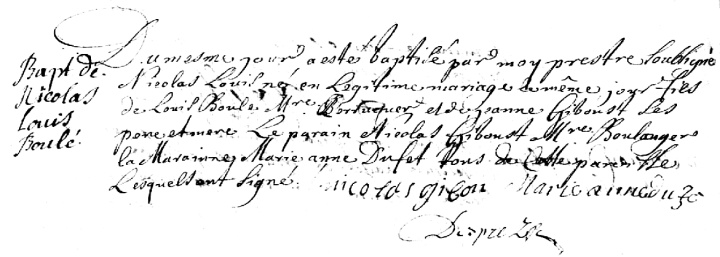 Bapt de
Nicolas
Louis
Boulé.
Du mesme jour a esté baptisé par moy prestre soubsigné
Nicolas Louis né en Legitime mariage le même jour fils
de Louis Boulé Mre Perruquer et de Jeanne Giboust Ses
pere et mere Le parain Nicolas Giboust Mre Boulanger
la Marainne Marie anne Dufet tous de Cette paroisse
Lesquels ont signé. nicolas gibou Marie anne
Desprez